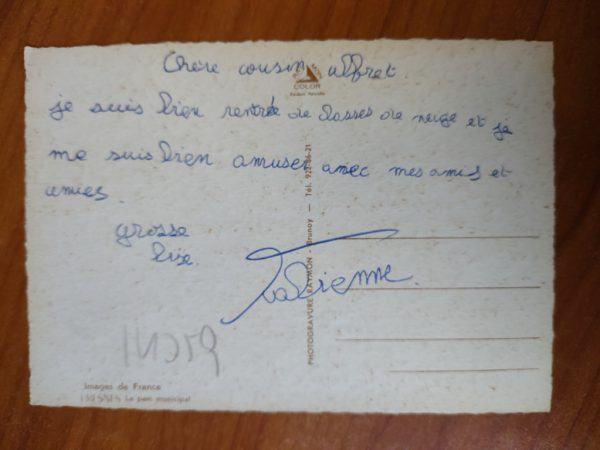 Chère cousin Alfret.
COLOR
je suis bien rentrée de classes de neige et je
me suis bien amuser avec mes amis et
amies.
grosse
bise.
Fabienne.
PHOTOGRAVURE RAYMON - Brunoy — Tél. 922-06-21
Images de France
Le parc municipal